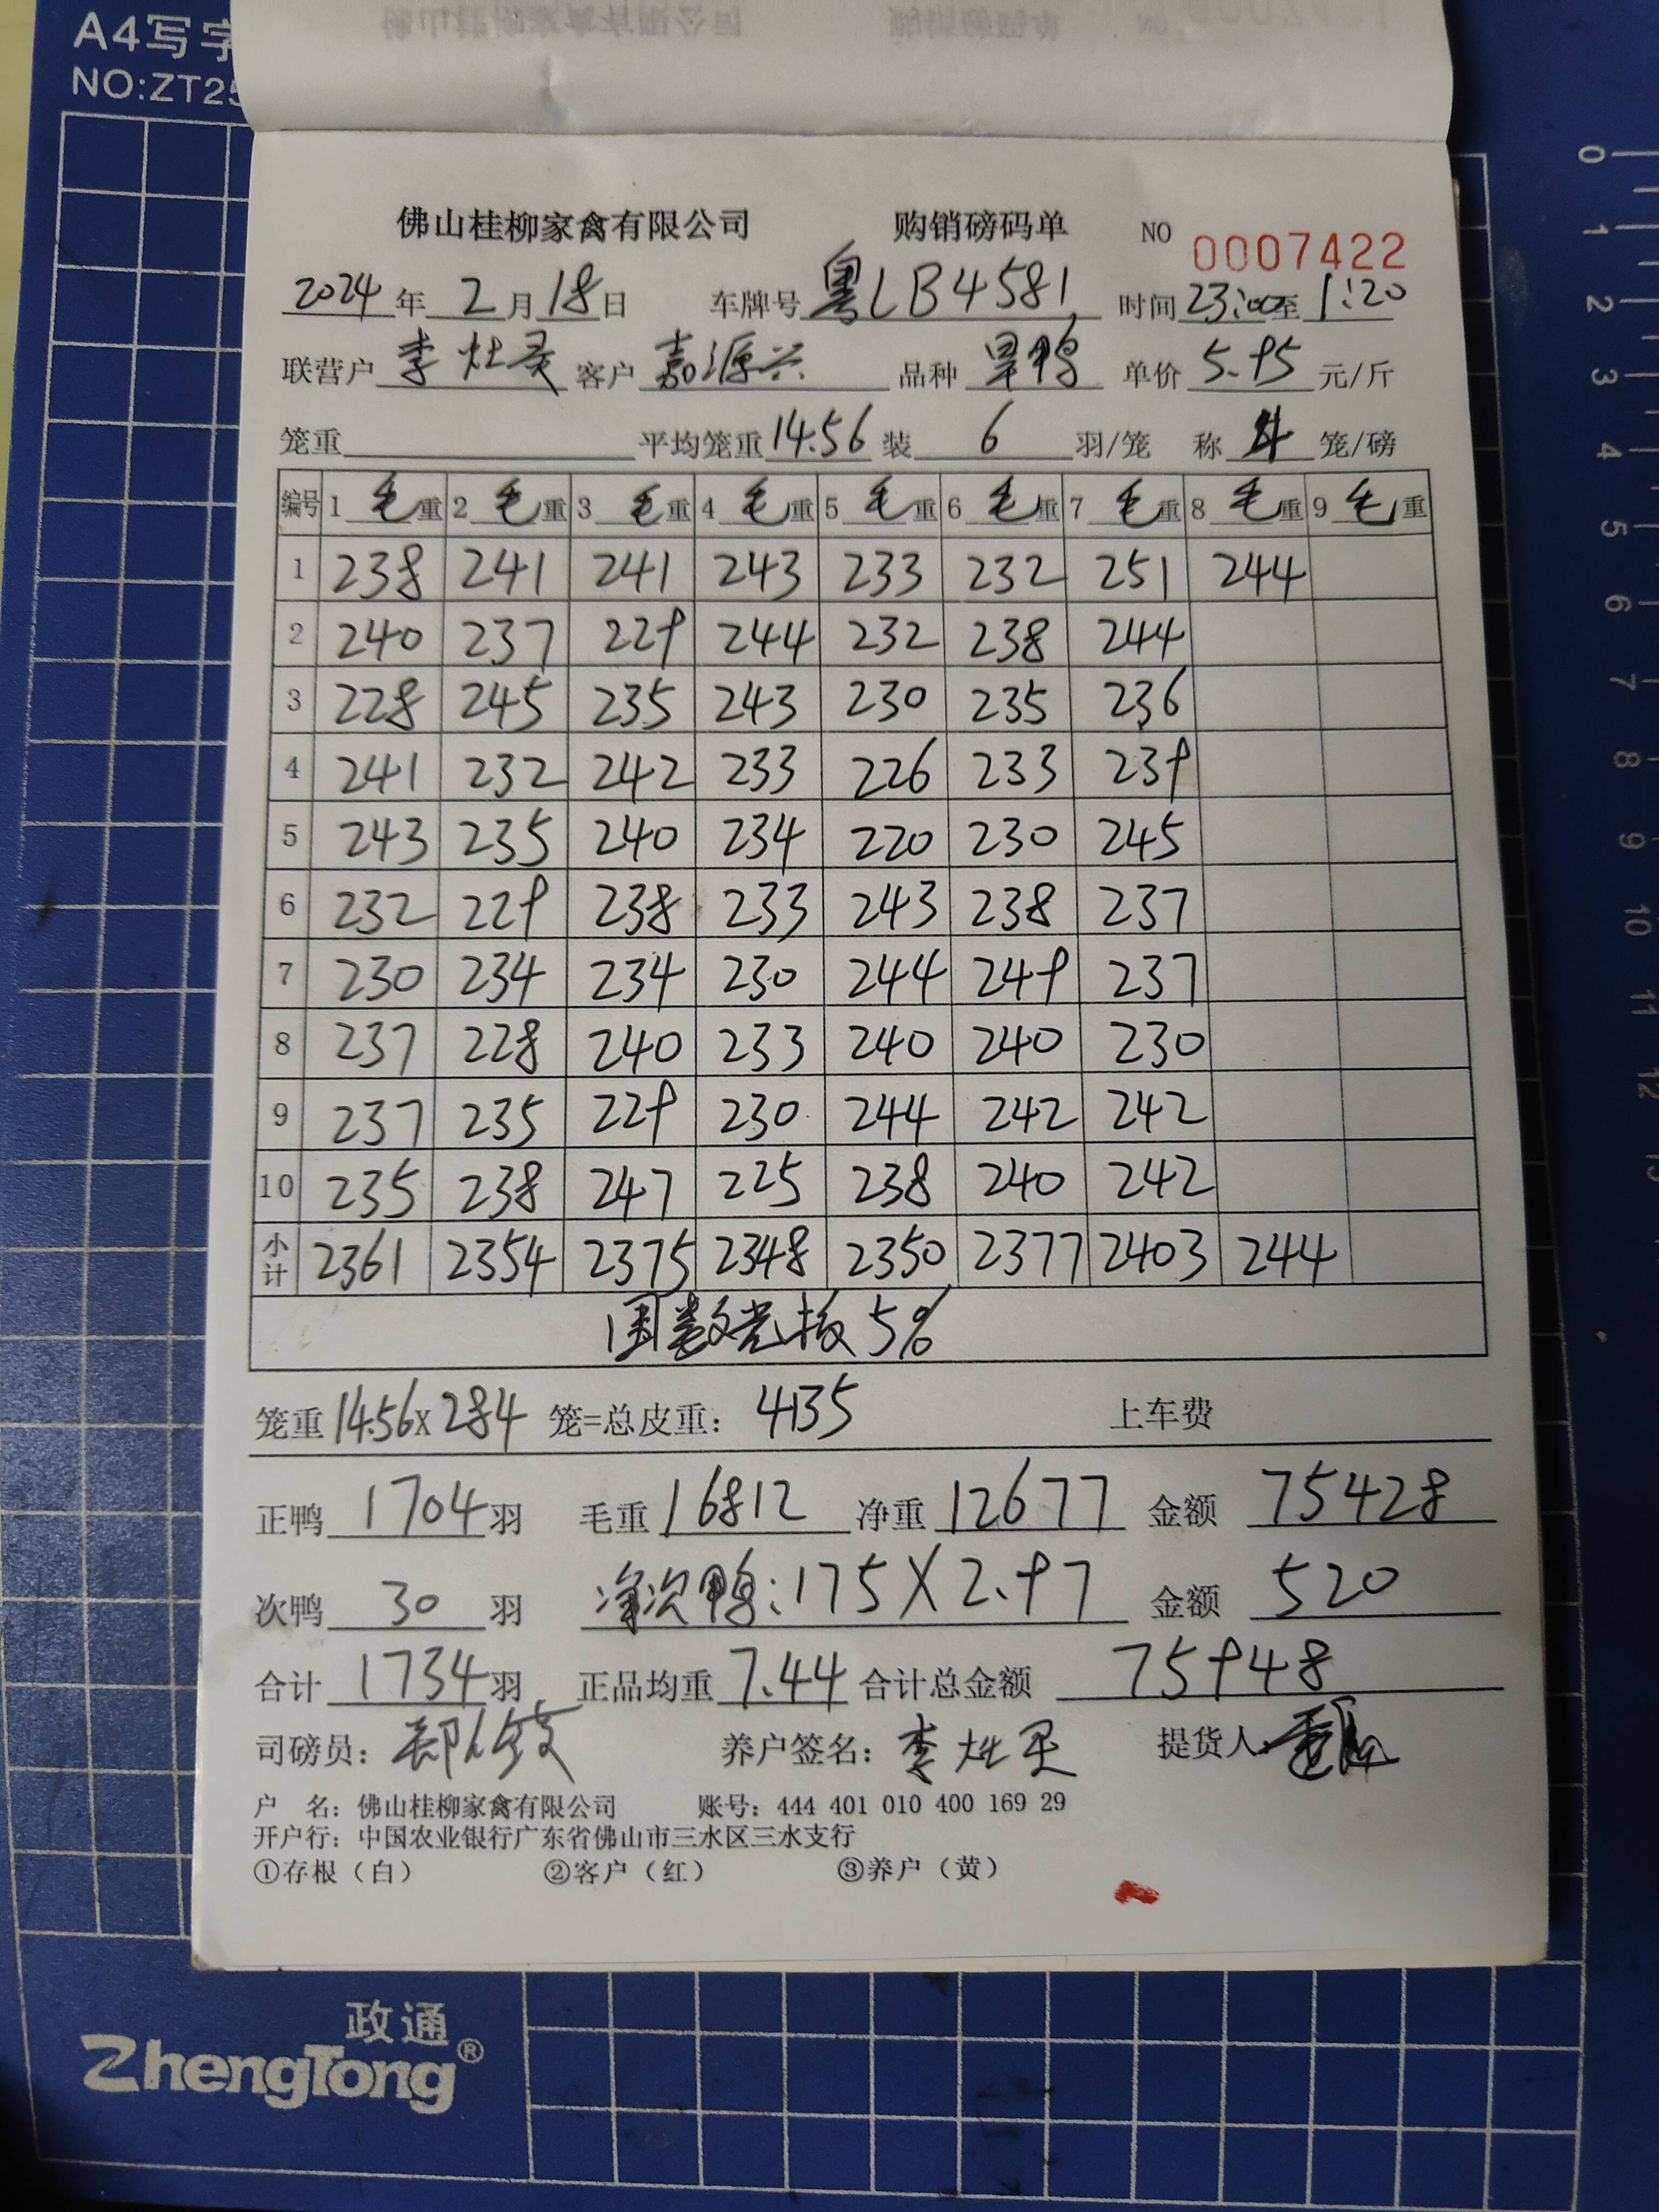 A4写字
NO:ZT25
佛山桂柳家禽有限公司 购销磅码单 NO 0007422
2024年2月18日 车牌号 粤LB4581 时间23:00至1:20
联营户 李灶 客户 嘉源兴 品种 旱鸭 单价 5.95 元/斤
笼重 平均笼重14.56 装 6 羽/笼 称 4 笼/磅
编号 1 毛重 2 毛重 3 毛重 4 毛重 5 毛重 6 毛重 7 毛重 8 毛重 9 毛重
1 238 241 241 243 233 232 251 244
2 240 237 229 244 232 238 244
3 228 245 235 243 230 235 236
4 241 232 242 233 226 233 239
5 243 235 240 234 220 230 245
6 232 229 238 233 243 238 237
7 230 234 234 230 244 249 237
8 237 228 240 233 240 240 230
9 237 235 229 230 244 242 242
10 235 238 247 225 238 240 242
小计 2361 2354 2375 2348 2350 2377 2403 244
5%
笼重14.56X284 笼=总皮重: 4135 上车费
正鸭 1704 羽 毛重 16812 净重 12677 金额 75428
次鸭 30 羽 净次鸭:175X2.97 金额 520
合计 1734 羽 正品均重 7.44 合计总金额 75948
司磅员: 养户签名: 李灶 提货人:
户 名: 佛山桂柳家禽有限公司 账号: 444 401 010 400 169 29
开户行: 中国农业银行广东省佛山市三水区三水支行
①存根（白） ②客户（红） ③养户（黄）
政通
ZhengTong®
0
1
2
3
4
5
6
7
8
9
10
11
12
13